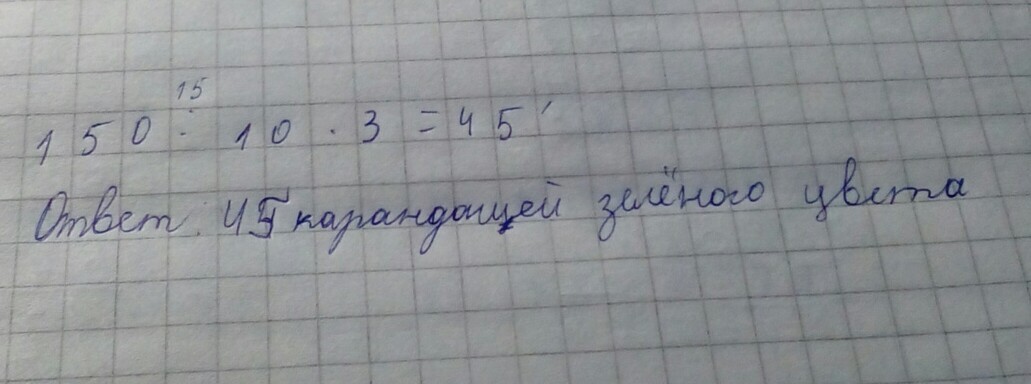 15
150 : 10 · 3 = 45
Ответ: 45 карандашей зелёного цвета